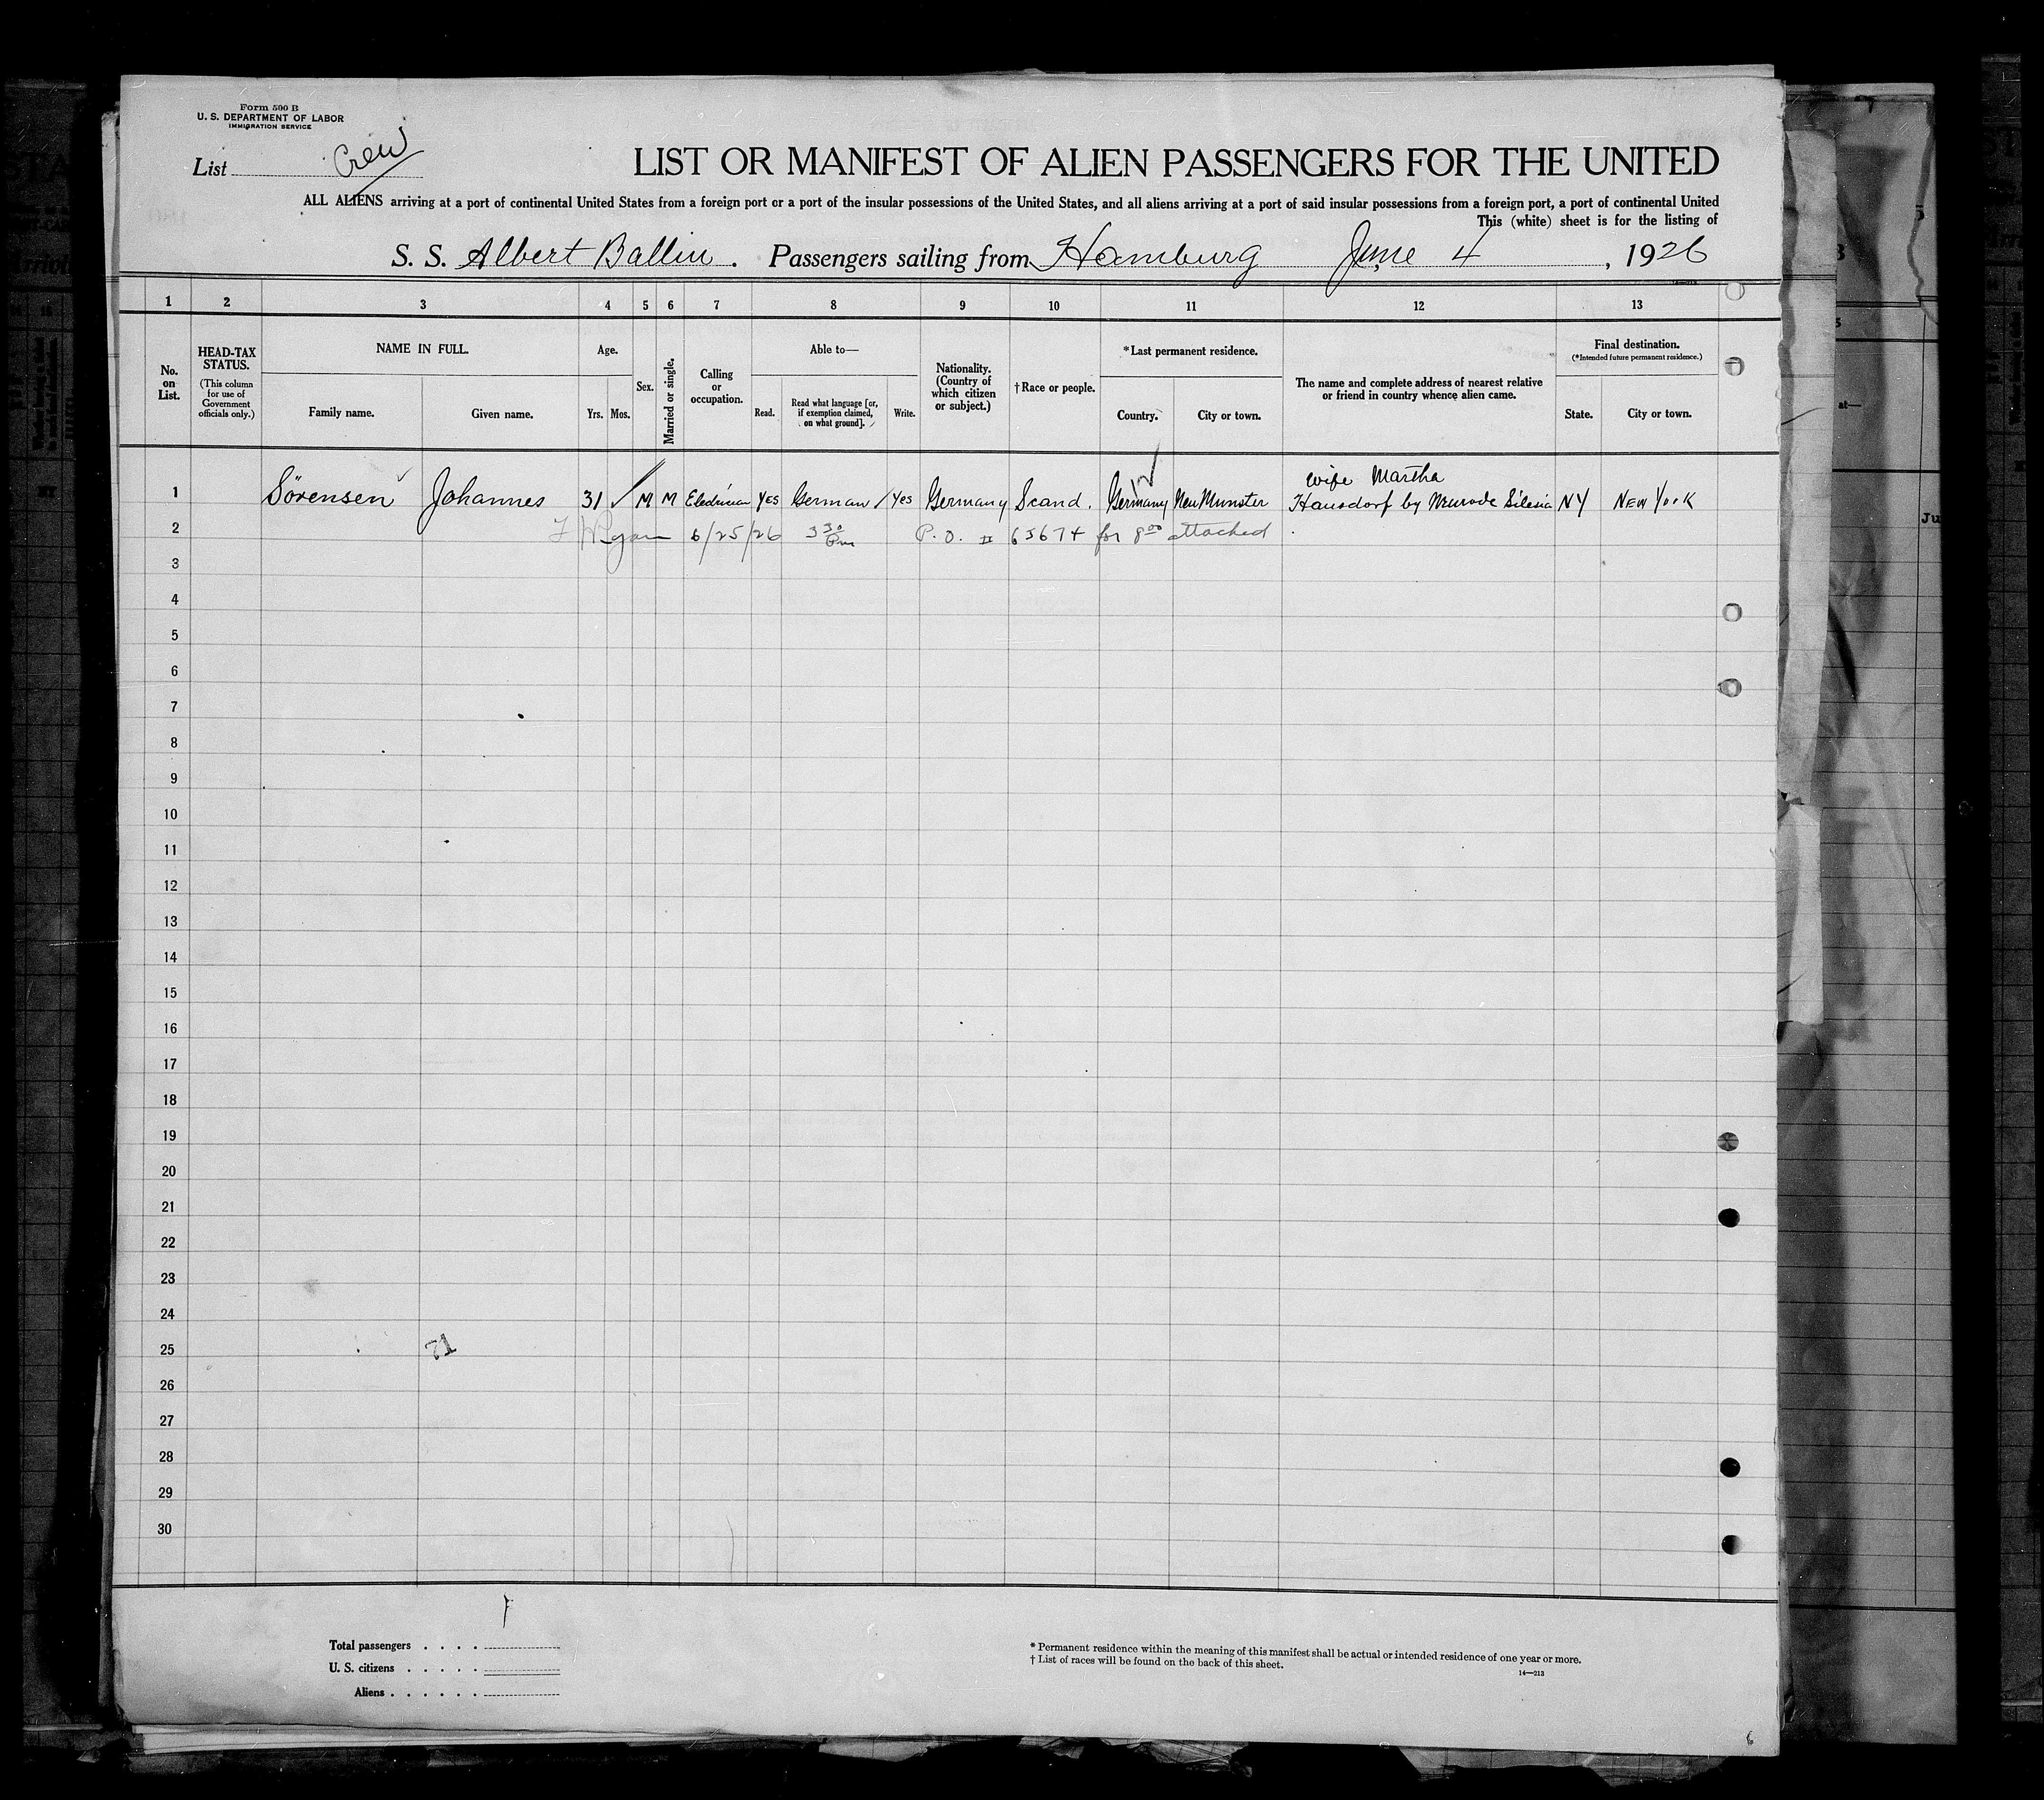 Form 500 B
U. S. DEPARTMENT OF LABOR
IMMIGRATION SERVICE
List Crew
LIST OR MANIFEST OF ALIEN PASSENGERS FOR THE UNITED
ALL ALIENS arriving at a port of continental United States from a foreign port or a port of the insular possessions of the United States, and all aliens arriving at a port of said insular possessions from a foreign port, a port of continental United
This (white) sheet is for the listing of
S. S. Albert Ballin . Passengers sailing from Hamburg June 4 , 1926
1 2 3 4 5 6 7 8 9 10 11 12 13
No. on List.
HEAD-TAX STATUS.
(This column for use of Government officials only.)
NAME IN FULL.
Family name. Given name.
Age.
Yrs. Mos.
Sex.
Married or single.
Calling or occupation.
Able to—
Read. Read what language [or, if exemption claimed, on what ground]. Write.
Nationality. (Country of which citizen or subject.)
† Race or people.
* Last permanent residence.
Country. City or town.
The name and complete address of nearest relative or friend in country whence alien came.
Final destination.
(*Intended future permanent residence.)
State. City or town.
wife Martha
1 Sörensen Johannes 31 M M Electrician Yes German Yes Germany Scand. Germany Neu Munster Hausdorf by Neurode Silesia NY New York
2 Ryan 6/25/26 3 30 Pm P. O. 65674 for 8 00 attached
3
4
5
6
7
8
9
10
11
12
13
14
15
16
17
18
19
20
21
22
23
24
25
26
27
28
29
30
Total passengers . . . .
U. S. citizens . . . . .
Aliens . . . . . .
* Permanent residence within the meaning of this manifest shall be actual or intended residence of one year or more.
† List of races will be found on the back of this sheet.
14—213
6